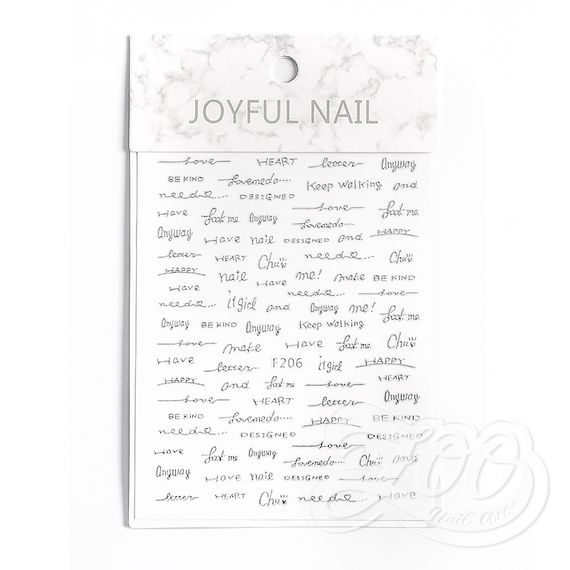 JOYFUL NAIL
love HEART letter Anyway
BE KIND Lovemedo.... Keep walking and
need DESIGNED
Have Look me Anyway love Look me
Anyway Have nail DESIGNED and Lovemedo.... HAPPY
letter HEART Chu need Chu
HAPPY nail me! make BE KIND
Have Have need love
need itgirl and Anyway me! Look me
Anyway BE KIND Anyway Keep walking
love make Have Look me Chu
Have letter F206 itgirl HAPPY
HAPPY and Look me love HEART
love HEART letter Anyway
BE KIND Lovemedo.... HAPPY BE KIND
need DESIGNED love DESIGNED
Have Look me Lovemedo.... Chu and
Anyway Have nail DESIGNED Have
letter HEART Chu need Have
ZOO
Nail Art